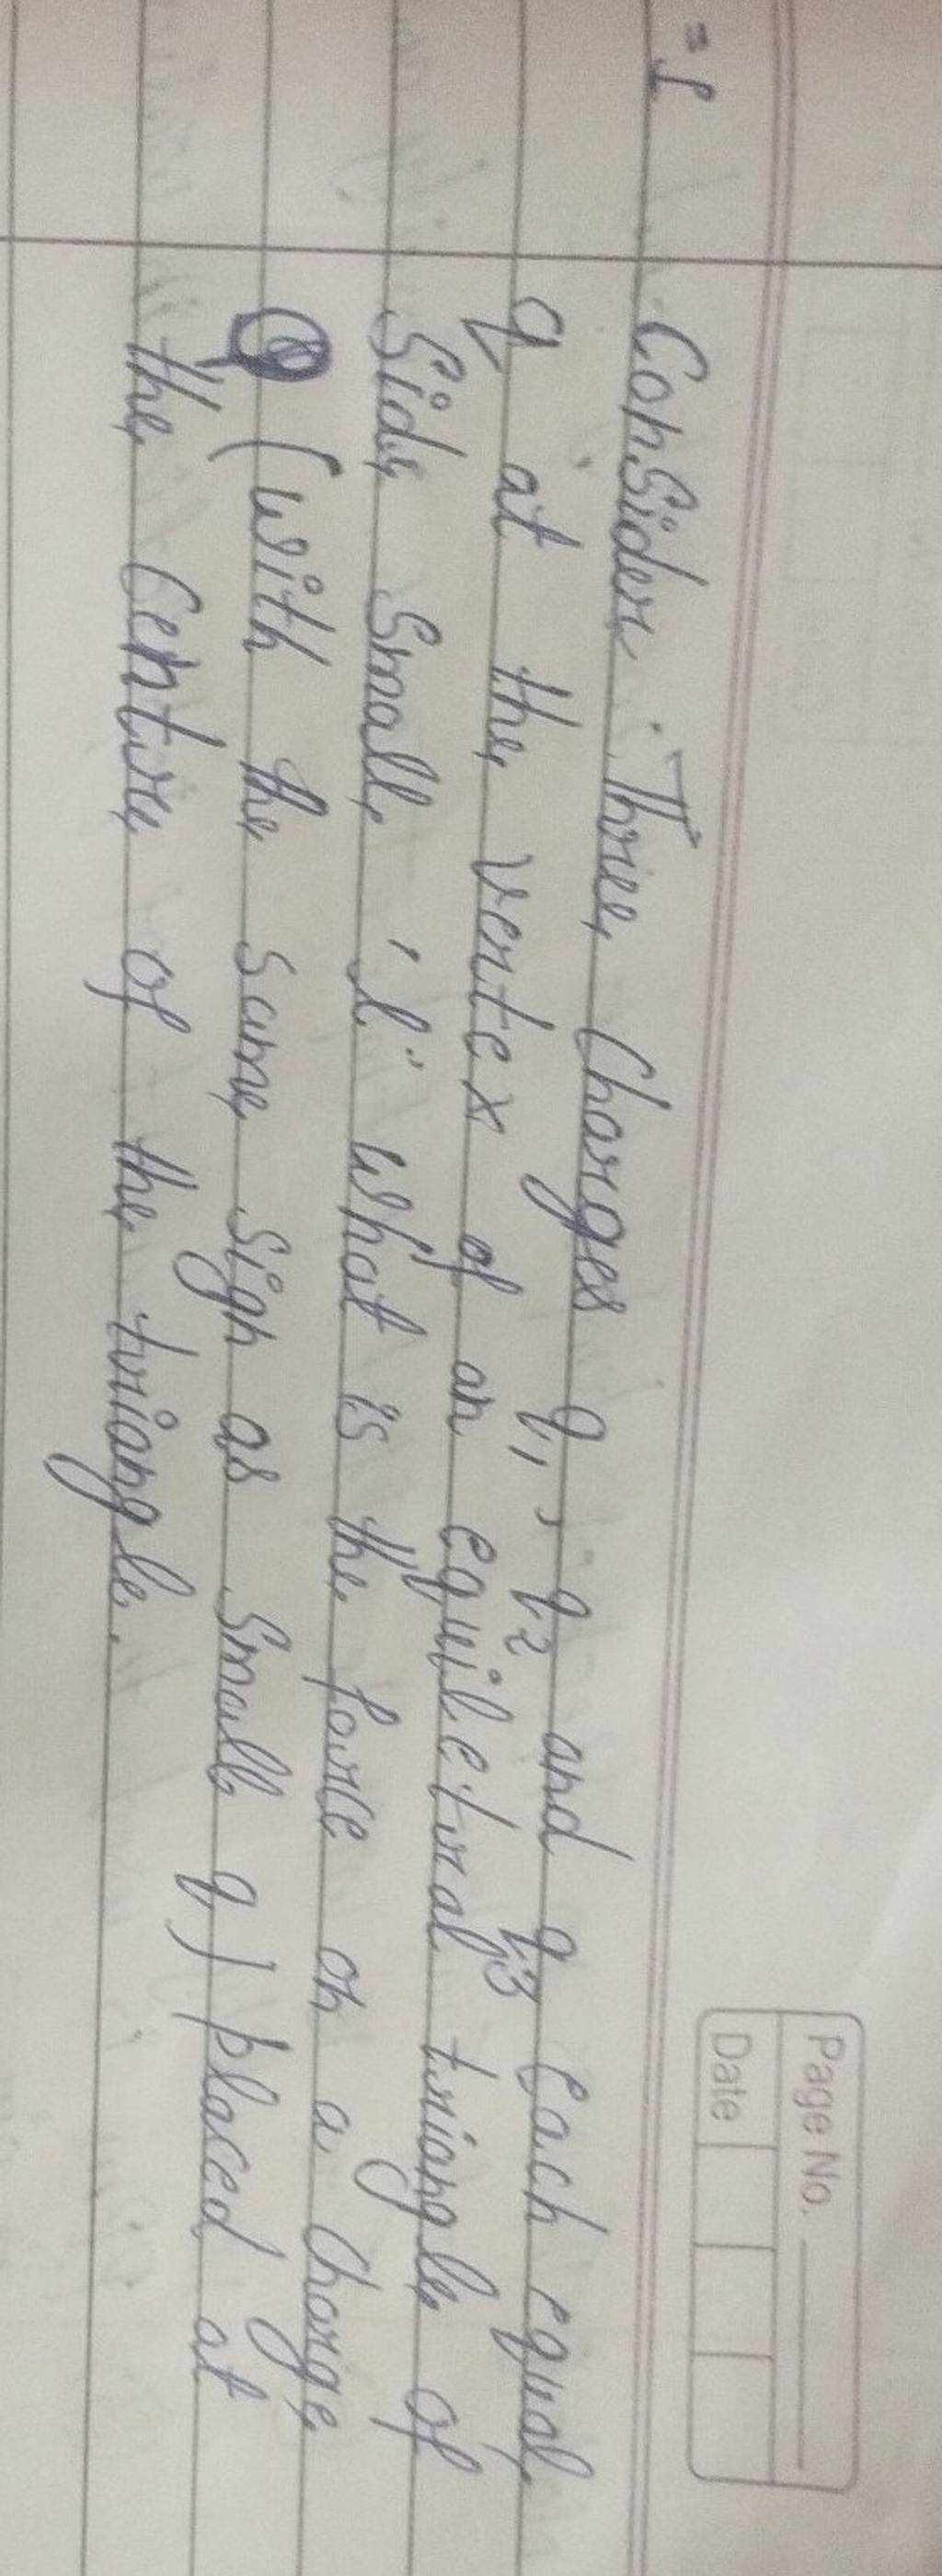 Page No.
Date
= 1 Consider Three Charges q1, q2 and q3 each equal
q at the vertex of an equiletral triangle of
Side Small 'l' what is the force on a charge
Q (with the same sign as small q) placed at
the centre of the triangle.